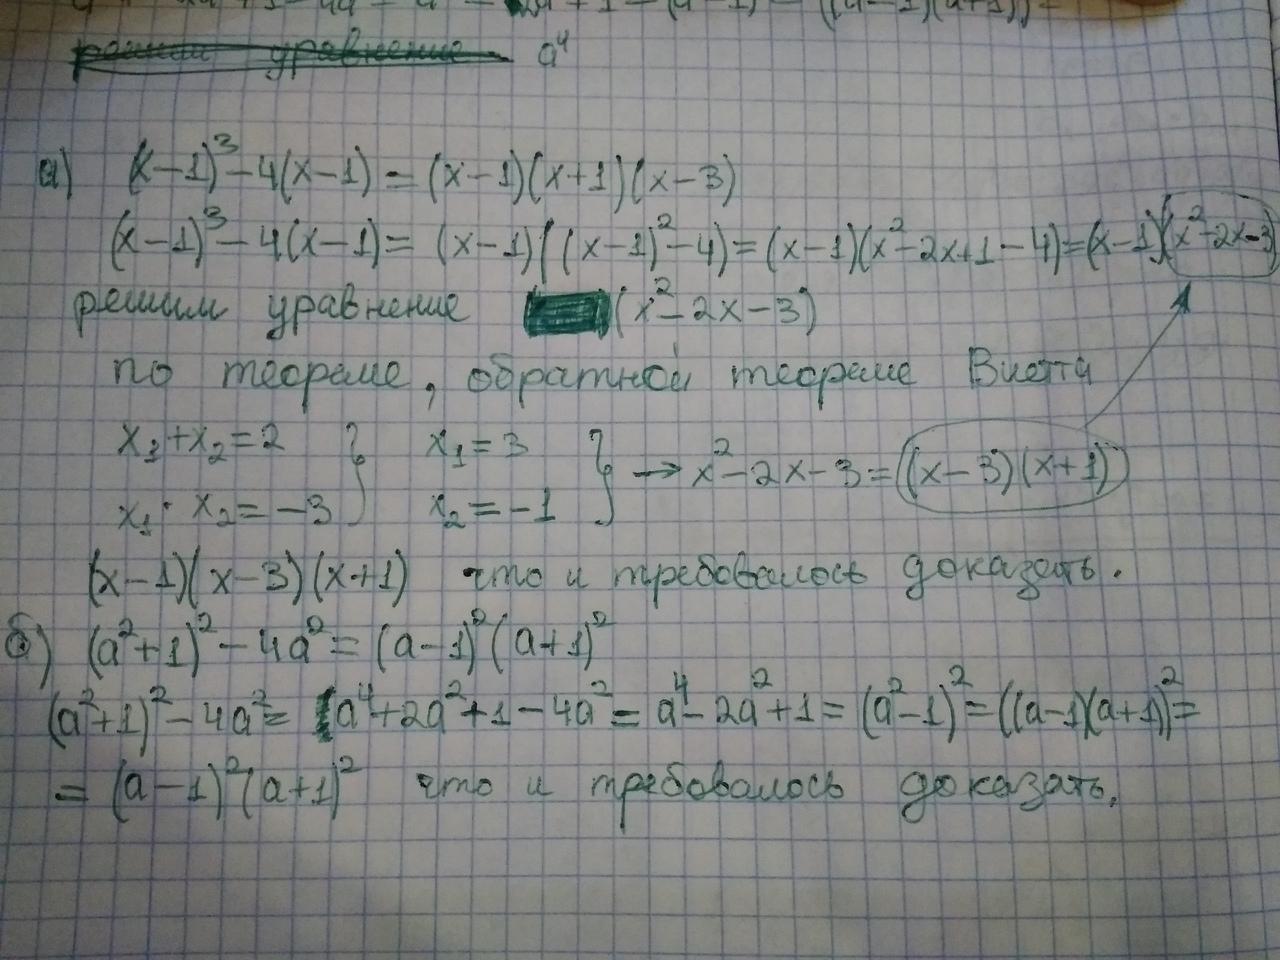 a⁴
а) (x-1)³-4(x-1)=(x-1)(x+1)(x-3)
(x-1)³-4(x-1)= (x-1)((x-1)²-4)=(x-1)(x²-2x+1-4)=(x-1)(x²-2x-3)
решим уравнение (x²-2x-3)
по теореме, обратной теореме Виетта
x₁+x₂=2 } x₁=3 } → x²-2x-3=((x-3)(x+1))
x₁·x₂=-3 x₂=-1
(x-1)(x-3)(x+1) что и требовалось доказать.
б) (a²+1)²-4a²=(a-1)²(a+1)²
(a²+1)²-4a²= a⁴+2a²+1-4a²=a⁴-2a²+1=(a²-1)²=((a-1)(a+1))²=
=(a-1)²(a+1)² что и требовалось доказать.